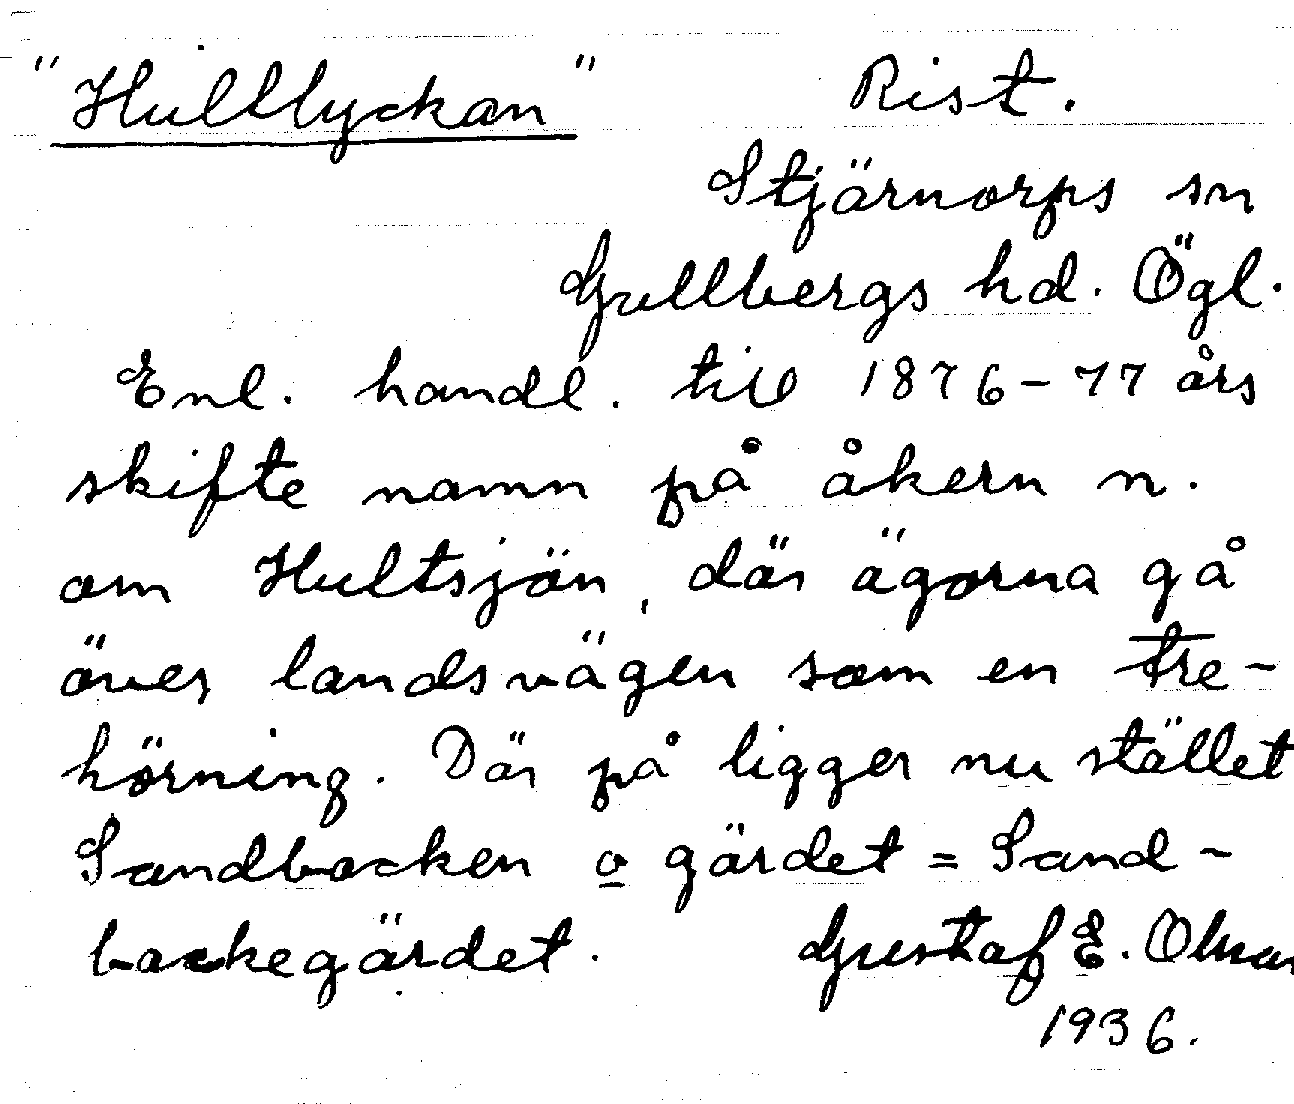 "Hultlyckan" Rist.
Stjärnorps sn
Gullbergs hd. Ögl.
Enl. handl. till 1876-77 års
skifte namn på åkern n.
om Hultsjön, där ägorna gå
över landsvägen som en tre-
hörning. Där på ligger nu stället
Sandbacken o gärdet = Sand-
backegärdet. Gustaf E.
1936.